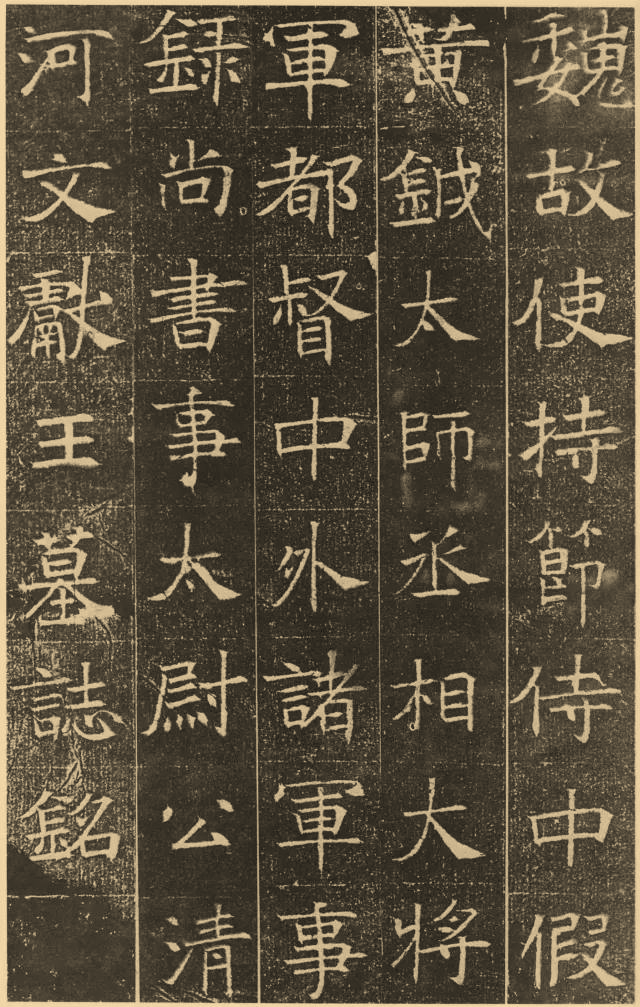 魏故使持節侍中假
黃鉞太師丞相大將
軍都督中外諸軍事
録尚書事太尉公清
河文獻王墓誌銘